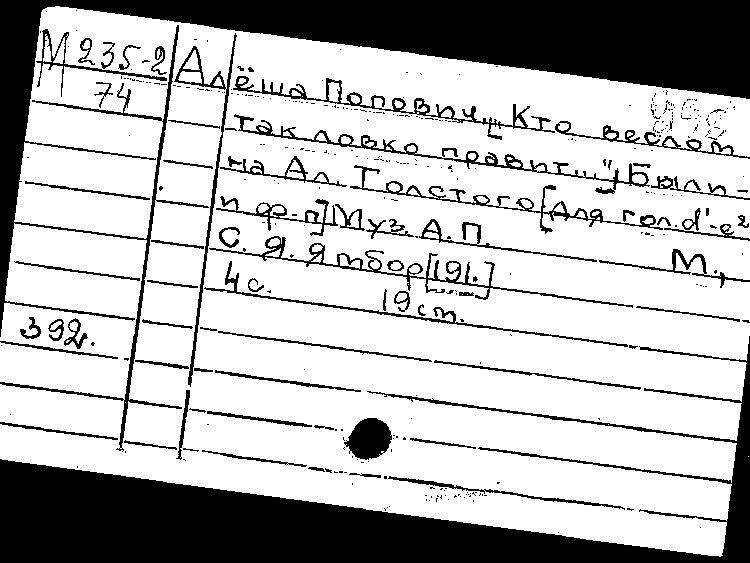 М 235-2
74
Алёша Попович. [„Кто веслом
так ловко правит..."] Были-
на Ал. Толстого [Для гол. d'-e²
и ф-п] Муз. А.П.
М.,
С. Я. Ямбор [191.]
4 с. 19 см.
392.